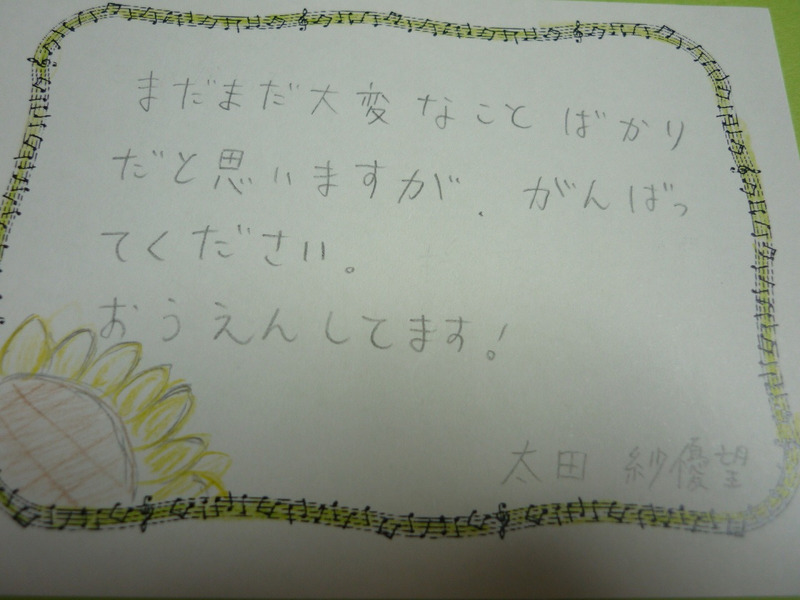 まだまだ大変なことばかり
だと思いますが、がんばっ
てください。
おうえんしてます!
太田 紗優望